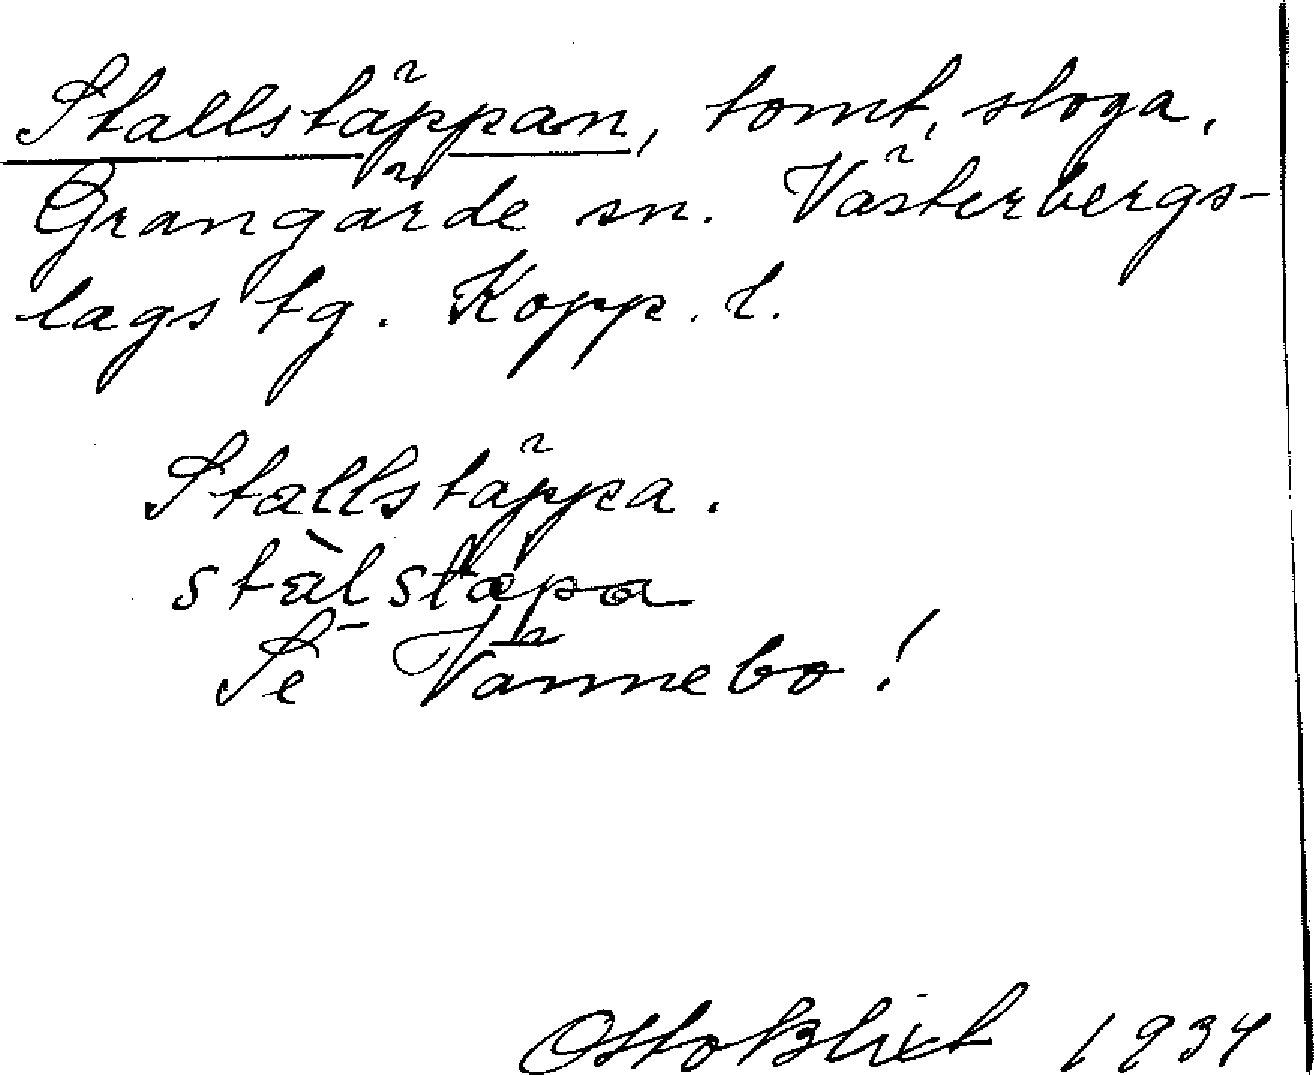 Stallstäppan, tomt, stoga,
Grangärde sn. Västerbergs-
lags tg. Kopp. l.
Stallstäppa.
stàlstäpa
Se Vännebo!
Otto Blixt 1934